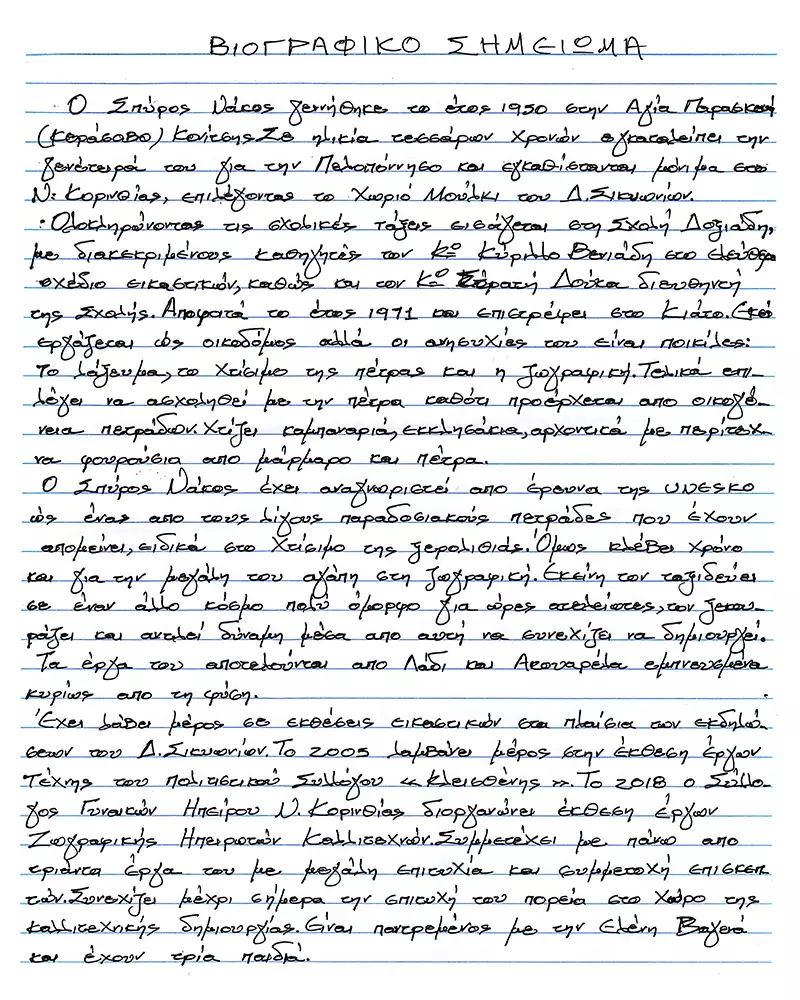 ΒΙΟΓΡΑΦΙΚΟ ΣΗΜΕΙΩΜΑ
Ο Σπύρος Νάκος γεννήθηκε το έτος 1950 στην Αγία Παρασκευή
(Κεράσοβο) Κονίτσης. Σε ηλικία τεσσάρων χρονών εγκαταλείπει την
γενέτειρά του για την Πελοπόννησο και εγκαθίσταται μόνιμα στο
Ν. Κορινθίας, επιλέγοντας το χωριό Μούλκι του Δ. Σικυωνίων.
Ολοκληρώνοντας τις σχολικές τάξεις εισάγεται στη Σχολή Δοξιάδη,
με διακεκριμένους καθηγητές τον Κο Κύριλλο Βενιάδη στο ελεύθερο
σχέδιο εικαστικών, καθώς και τον Κο Στρατή Δούκα διευθηντή
της Σχολής. Αποφοιτά το έτος 1971 και επιστρέφει στο Κιάτο. Εκεί
εργάζεται ώς οικοδόμος αλλά οι ανησυχίες του είναι ποικίλες:
Το λάξευμα, το χτίσιμο της πέτρας και η ζωγραφική. Τελικά επι-
λέγει να ασχοληθεί με την πέτρα καθότι προέρχεται απο οικογέ-
νεια πετράδων. Χτίζει καμπαναριά, εκκλησάκια, αρχοντικά με περίτεχ-
να φουρούσια απο μάρμαρο και πέτρα.
Ο Σπύρος Νάκος έχει αναγνωριστεί απο έρευνα της UNESKO
ώς ένας απο τους λίγους παραδοσιακούς πετράδες που έχουν
απομείνει, ειδικά στο χτίσιμο της ξερολιθιάς. Όμως κλέβει χρόνο
και για την μεγάλη του αγάπη στη ζωγραφική. Εκείνη τον ταξιδεύει
σε έναν άλλο κόσμο πολύ όμορφο για ώρες ατελείωτες, τον ξεκου-
ράζει και αντλεί δύναμη μέσα απο αυτή να συνεχίζει να δημιουργεί.
Τα έργα του αποτελούνται απο Λάδι και Ακουαρέλα εμπνευσμένα
κυρίως απο τη φύση.
Έχει λάβει μέρος σε εκθέσεις εικαστικών στα πλαίσια των εκδηλώ-
σεων του Δ. Σικυωνίων. Το 2005 λαμβάνει μέρος στην έκθεση έργων
Τέχνης του πολιτιστικού Συλλόγου « Κλεισθένης ». Το 2018 ο Σύλλο-
γος Γυναικών Ηπείρου Ν. Κορινθίας διοργανώνει έκθεση έργων
Ζωγραφικής Ηπειρωτών Καλλιτεχνών. Συμμετέχει με πάνω απο
τριάντα έργα του με μεγάλη επιτυχία και συμμετοχή επισκεπ
τών. Συνεχίζει μέχρι σήμερα την επιτυχή του πορεία στο χώρο της
καλλιτεχνικής δημιουργίας. Είναι παντρεμένος με την Ελένη Βαγενά
και έχουν τρία παιδιά.